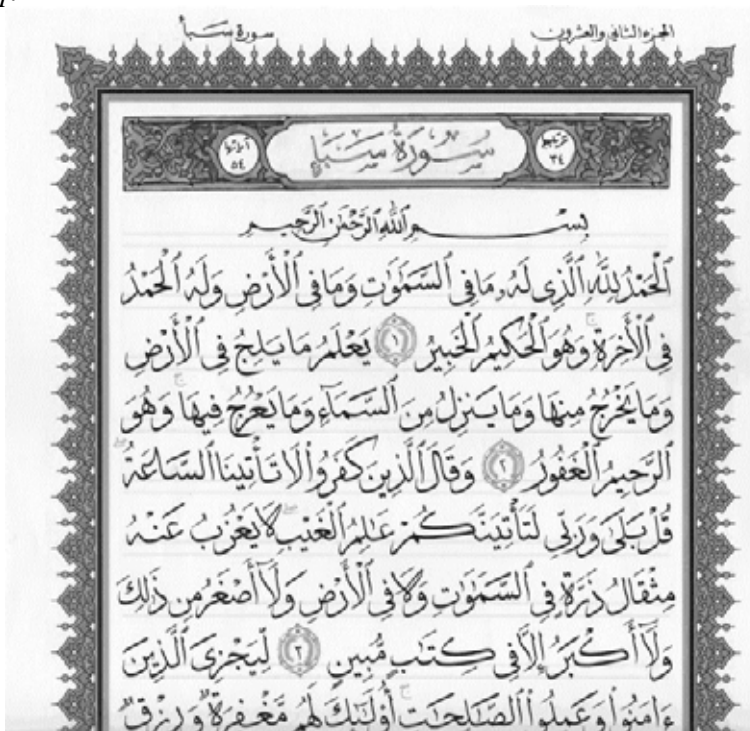 الجزء الثاني والعشرون
سورة سبأ
ترتيبها ٣٤
سُورَةُ سَبَإٍ
آياتها ٥٤
بِسْمِ اللَّهِ الرَّحْمَٰنِ الرَّحِيمِ
الْحَمْدُ لِلَّهِ الَّذِى لَهُۥ مَا فِى السَّمَٰوَٰتِ وَمَا فِى الْأَرْضِ وَلَهُ الْحَمْدُ
فِى الْأَخِرَةِ ۚ وَهُوَ الْحَكِيمُ الْخَبِيرُ ١ يَعْلَمُ مَا يَلِجُ فِى الْأَرْضِ
وَمَا يَخْرُجُ مِنْهَا وَمَا يَنزِلُ مِنَ السَّمَآءِ وَمَا يَعْرُجُ فِيهَا ۚ وَهُوَ
الرَّحِيمُ الْغَفُورُ ٢ وَقَالَ الَّذِينَ كَفَرُوا لَا تَأْتِينَا السَّاعَةُ ۖ
قُلْ بَلَىٰ وَرَبِّى لَتَأْتِيَنَّكُمْ عَٰلِمُ الْغَيْبِ ۖ لَا يَعْزُبُ عَنْهُ
مِثْقَالُ ذَرَّةٍ فِى السَّمَٰوَٰتِ وَلَا فِى الْأَرْضِ وَلَآ أَصْغَرُ مِن ذَٰلِكَ
وَلَآ أَكْبَرُ إِلَّا فِى كِتَٰبٍ مُّبِينٍ ٣ لِّيَجْزِىَ الَّذِينَ
ءَامَنُوا وَعَمِلُوا الصَّٰلِحَٰتِ ۚ أُولَٰٓئِكَ لَهُم مَّغْفِرَةٌ وَرِزْقٌ